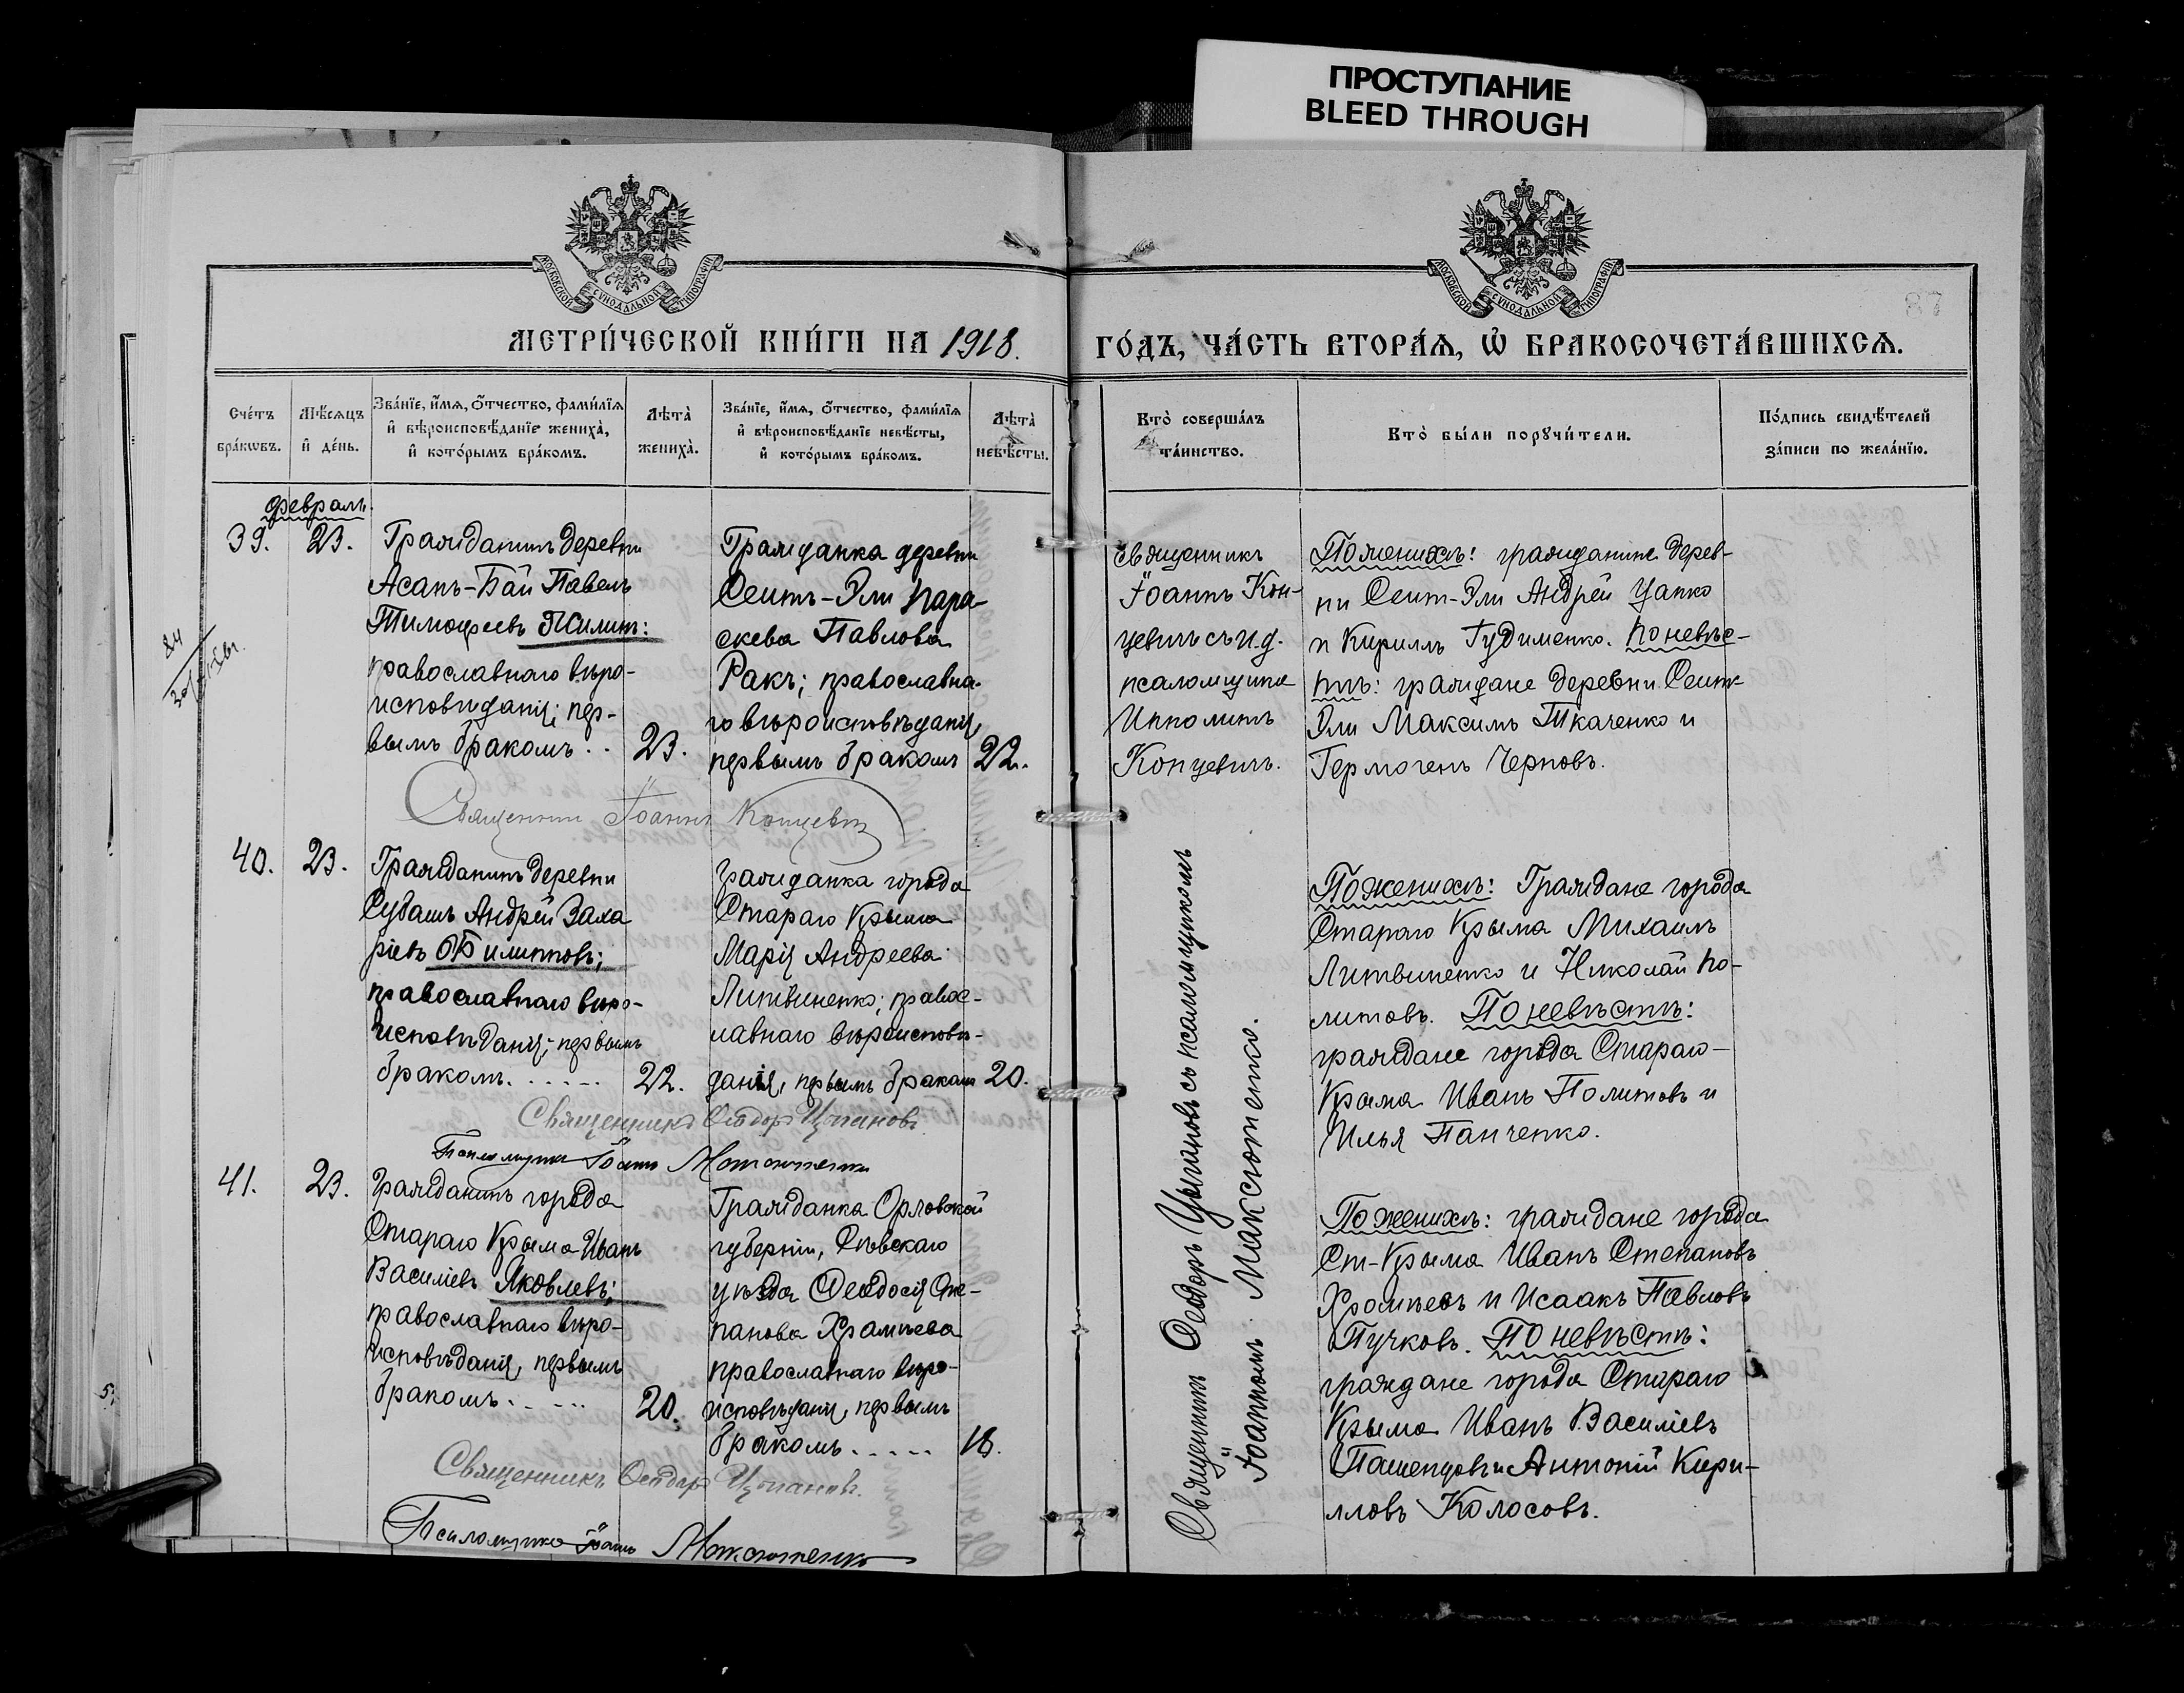 ПРОСТУПАНИЕ
BLEED THROUGH
МОСКОВСКОЙ СѴНОДАЛЬНОЙ ТИПОГРАФІИ
МОСКОВСКОЙ СѴНОДАЛЬНОЙ ТИПОГРАФІИ
87
МЕТРИ́ЧЕСКОЙ КНИ́ГИ НА 1918.
ГО́ДЪ, ЧА́СТЬ ВТОРА́Ѧ, Ѡ҆ БРАКОСОЧЕТА́ВШИХСѦ.
Сче́тъ
бра́кωвъ.
Мѣ́сѧцъ
и҆ де́нь.
Зва́нїе, и҆́мѧ, ѻ҆́тчество, фами́лїѧ
и҆ вѣроисповѣ́данїе жениха̀,
и҆ кото́рымъ бра́комъ.
Лѣта̀
жениха̀.
Зва́нїе, и҆́мѧ, ѻ҆́тчество, фами́лїѧ
и҆ вѣроисповѣ́данїе невѣ́сты,
и҆ кото́рымъ бра́комъ.
Лѣта̀
невѣ́сты.
Кто̀ соверша́лъ
та́инство.
Кто̀ бы́ли порꙋчи́тели.
По́дпись свидѣ́телей
за́писи по жела́нїю.
Февраль.
39.
23.
Гражданинъ деревни
Асанъ-Бай Павелъ
Тимофеевъ Жилин:
православнаго вѣро-
исповѣданія; пер-
вымъ бракомъ . .
23.
Гражданка деревни
Сеитъ-Эли Пара-
скева Павлова
Ракъ; православна-
го вѣроисповѣданія,
первымъ бракомъ
22.
священникъ
Іоаннъ Кон-
цевичъ съ и.д.
псаломщика
Ипполитъ
Концевичъ.
По женихѣ: граждане дерев-
ни Сеит-Эли Андрей Цапко
и Кириллъ Гудименко. По невѣс-
тѣ: граждане деревни Сеит-
Эли Максимъ Ткаченко и
Гермогенъ Черновъ.
Священник Іоаннъ Концевич
40.
23.
Гражданинъ деревни
Субашъ Андрей Заха
ріевъ Филиппов;
православнаго вѣро-
исповѣданія; первымъ
бракомъ. . . . . .
22.
Гражданка города
Стараго Крыма
Марія Андреева
Литвиненко; правос-
лавнаго вѣроисповѣ-
данія, первымъ бракомъ
20.
По женихѣ: Граждане города
Стараго Крыма Михаилъ
Литвиненко и Николай По-
литовъ. По невѣстѣ:
граждане города Стараго-
Крыма Иванъ Политовъ и
Илья Панченко.
Священникъ Ѳеодоръ Цыгановъ
Псаломщикъ Іоаннъ Максютенко
41.
23.
Гражданинъ города
Стараго Крыма Иванъ
Василіевъ Яковлевъ;
православнаго вѣро-
исповѣданія, первымъ
бракомъ. . . . .
20.
Гражданка Орловской
губерніи, Сѣвскаго
уѣзда Ѳеодосія Сте-
панова Храмцева
православнаго вѣро-
исповѣданія, первымъ
бракомъ. . . . .
18.
По женихѣ: граждане города
Ст-Крыма Иванъ Степановъ
Храмцевъ и Исаакъ Павловъ
Пучковъ. По невѣстѣ:
граждане города Стараго
Крыма Иванъ Василіевъ
и Антоній Кири-
лловъ Колосовъ.
Священникъ Ѳеодоръ Цыгановъ.
Псаломщикъ Іоаннъ Максютенко
Священникъ Ѳеодоръ Цыгановъ съ псаломщикомъ
Іоанномъ Максютенко.